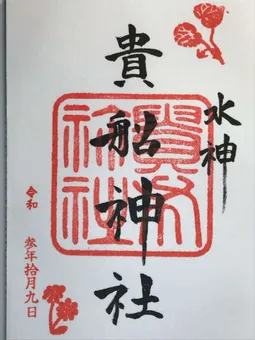 水神
貴船神社
貴船
神社
令和
参年拾月九日